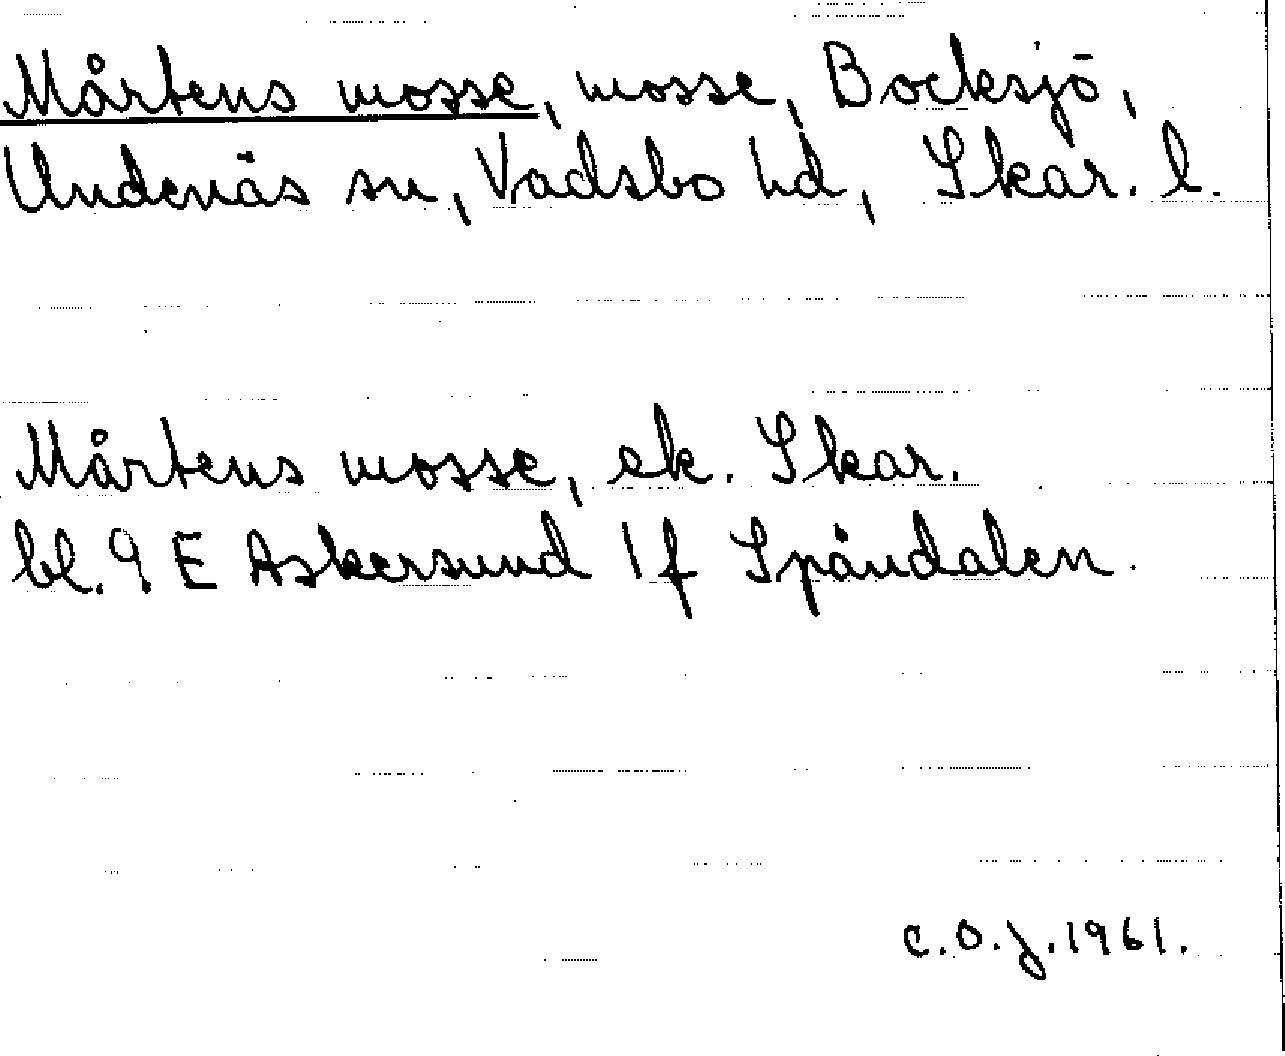 Mårtens mosse, mosse, Bocksjö,
Undenäs sn, Vadsbo hd, Skar. l.
Mårtens mosse, ek. Skar.
bl. 9 E Askersund 1f Spåndalen.
C.O.J. 1961.